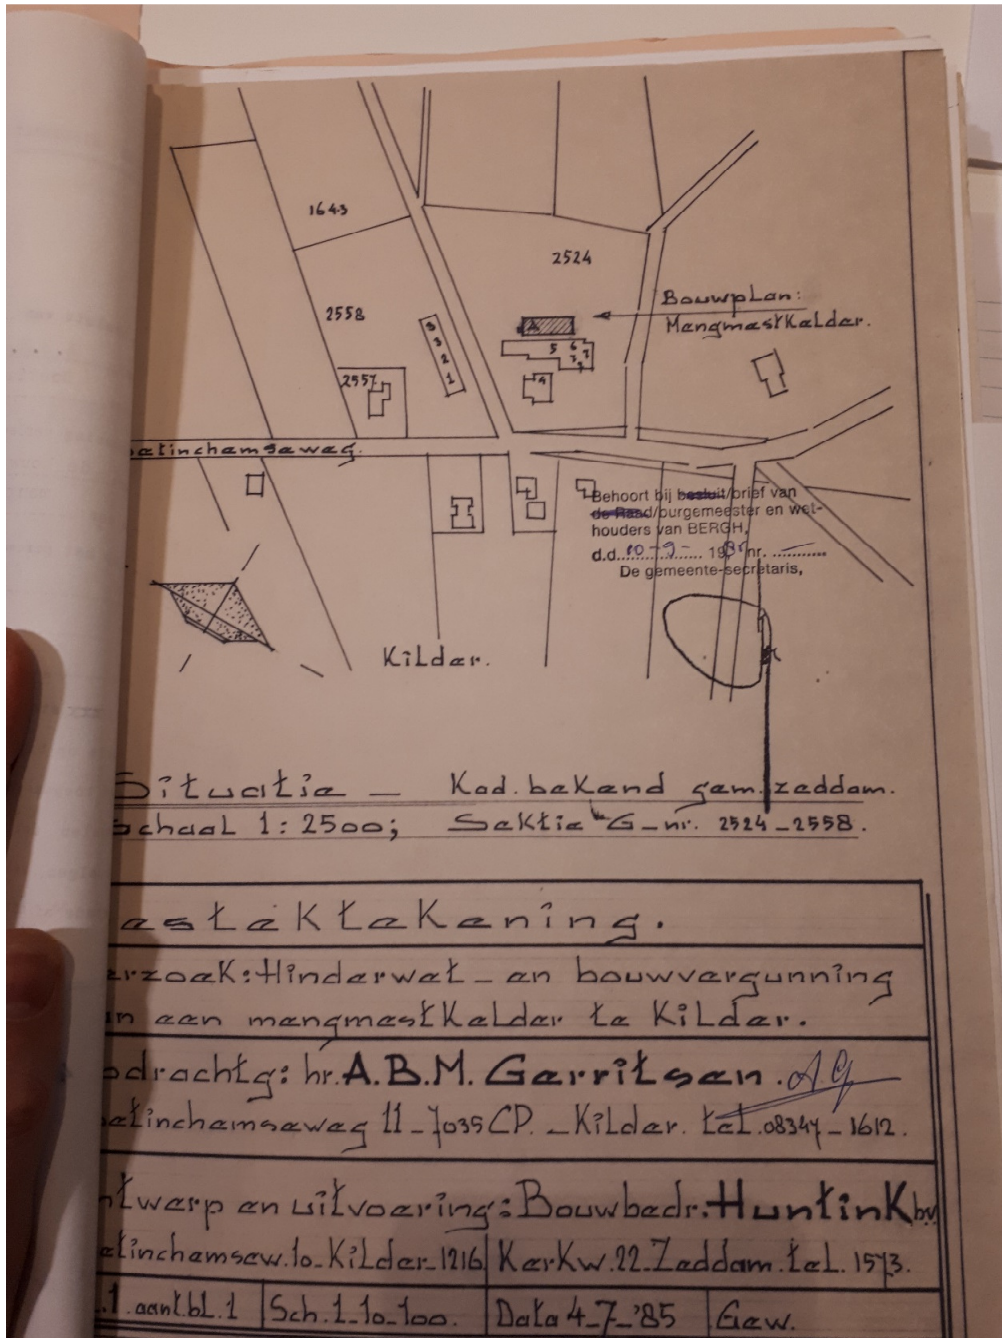 1643
2524
Bouwplan:
Mengmestkelder.
2558
3
2
1
5
6
7
2557
9
etinchemseweg.
Behoort bij besluit/brief van
de Raad/burgemeester en wet-
houders van BERGH,
d.d. 10-9- 1985 nr. —
De gemeente-secretaris,
Kilder.
Situatie — Kad. bekend gem. zeddam.
Schaal 1:2500; Sektie G-nr. 2524-2558.
estektekening.
erzoek: Hinderwet- en bouwvergunning
n een mengmestkelder te Kilder.
pdrachtg: hr. A.B.M. Gerritsen. AG
etinchemseweg 11-7035 CP.-Kilder. tel. 08347-1612.
ntwerp en uitvoering: Bouwbedr. Huntink bv.
etinchemsew. 10-Kilder-1216 Kerkw. 22-Zeddam. tel. 1573.
.1. aant. bl. 1 Sch. 1-10-100. Data 4-7-'85 Gew.